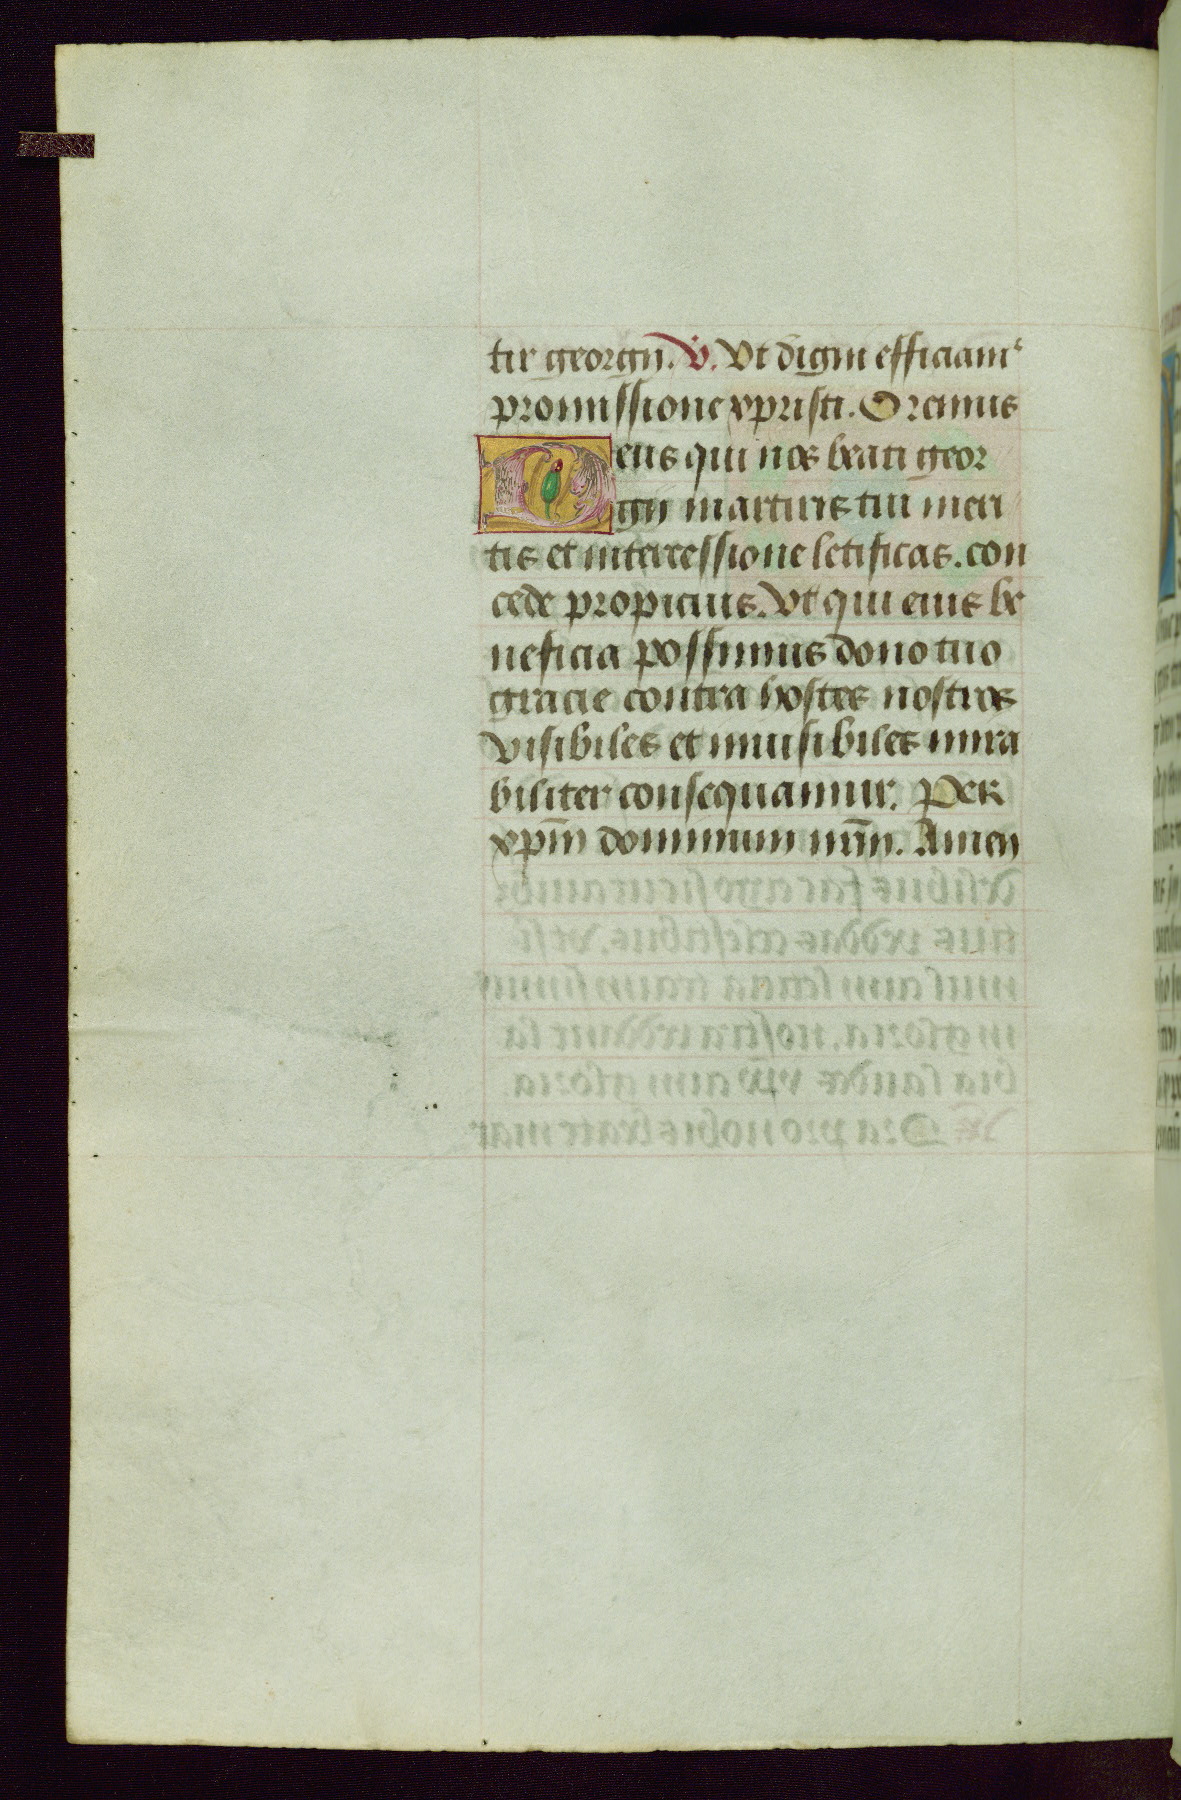 tir georgii. V. Vt digni efficiam᷒
promissione xpristi. Oremus
Deus qui nos beati geor
gii martiris tui meri
tis et intercessione letificas. con
cede propicius. Vt qui eius be
neficia possimus dono tuo
gracie contra hostes nostros
visibiles et inuisibiles mira
biliter consequamur. Per
xpm̄ dominum nr̄m. Amen